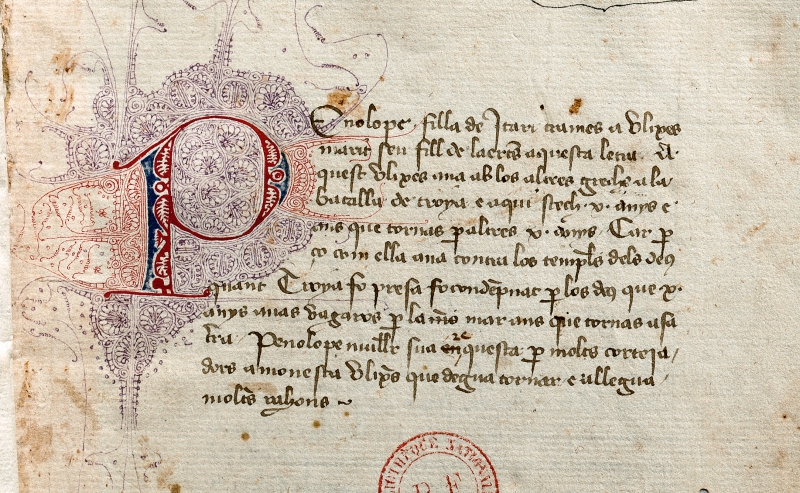 PEnolope filla de Itari trames a Vlixes
marit seu fill de laertes aquesta letra. A
quest Vlixes ana ab los altres grechs a la
batalla de troya e aqui stech .x. anys e
ans que tornas p altres .x. anys. Car p
ço com ella ana contra los temples dels deus
quant Troya fo presa fo condepnat p los deus que .x.
anys anas vagaros p la mar ans que tornas a sa
tra. Penolope muller sua enquesta p molts corteja
dors amonesta Vlixes que degua tornar e allegua
moltes rahons
BIBLIOTHEQUE NATIONALE
R F